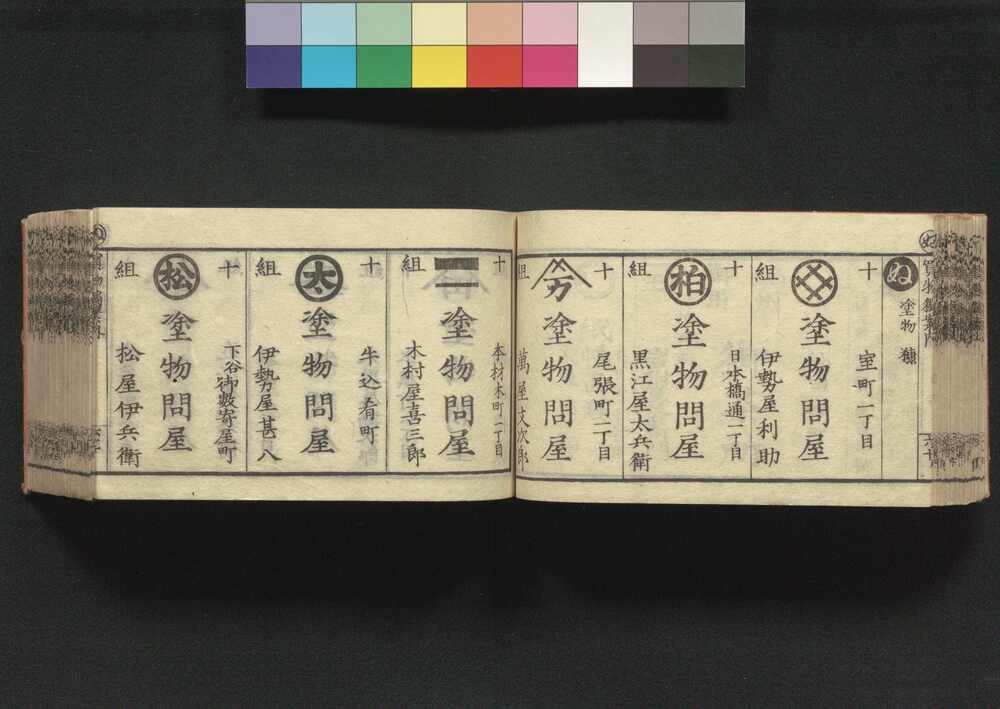 ぬ
塗物 䊧
十組
室町一丁目
塗物問屋
伊勢屋利助
十組
日本橋通一丁目
柏
塗物問屋
黒江屋太兵衛
十組
尾張町一丁目
万
塗物問屋
萬屋文次郎
十組
本材木町一丁目
一
塗物問屋
木村屋喜三郎
十組
牛込肴町
太
塗物問屋
伊勢屋甚八
十組
下谷御数寄屋町
松
塗物問屋
松屋伊兵衛